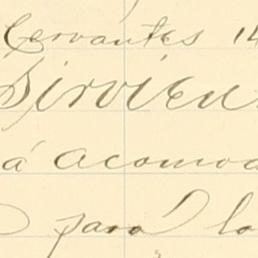 Cervantes 14
Sirvien
á acomod
para lo